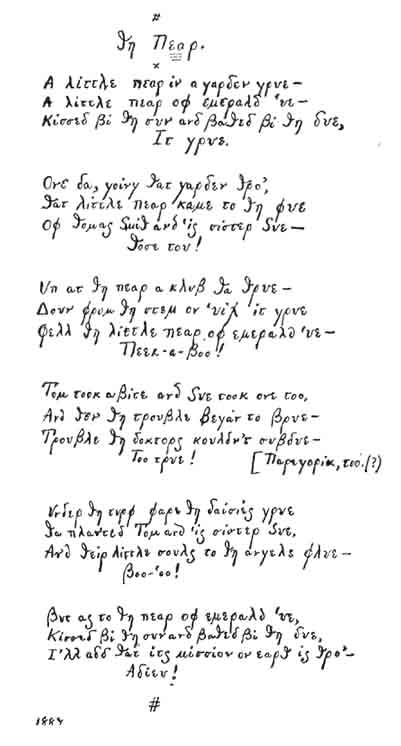 #
θη Πεαρ.
×
Α λίττλε πεαρ ἰν α γαρδεν γρυε—
Α λίττλε πεαρ οφ εμεραλδ ‘υε—
Κίσσεδ βἰ θη συν ανδ βαθεδ βἰ θη δυε,
Ἰτ γρυε.
Ονε δα, γοἰνγ θατ γαρδεν θρο’,
θατ λίττλε πεαρ καμε το θη φυε
Οφ θομας Σμἰθ ανδ ‘ἰς σίστερ Σνε—
θοσε του!
Υπ ατ θη πεαρ α κλυβ θα θρυε—
Δουν φρομ θη στεμ ον ‘υἰχ ἰτ γρυε
Φελλ θη λίττλε πεαρ οφ εμεραλδ ‘υε—
Πεεκ-α-βοο!
Τομ τοοκ α βἰτε ανδ Συε τοοκ ονε τοο,
Ανδ θεν θη τρουβλε βεγαν το βρυε—
Τρουβλε θη δοκτορς κουλδν’τ συβδυε—
Τοο τρυε! [Παρεγορἰκ, τοο. (?)
Υνδερ θη τυρφ φαρε θη δαἰσἰες γρυε
θα πλαντεδ Τομ ανδ ‘ἰς σίστερ Συε,
Ανδ θεἰρ λίττλε σουλς το θη ανγελς φλυε—
βοο-‘οο!
βυτ ας το θη πεαρ οφ εμεραλδ ‘υε,
Κίσσεδ βἰ θη συν ανδ βαθεδ βἰ θη δυε,
Ἰ’λλ αδδ θατ ἰτς μἰσσἰον ον εαρθ ἰς θρο’—
Αδἰευ!
#
1884